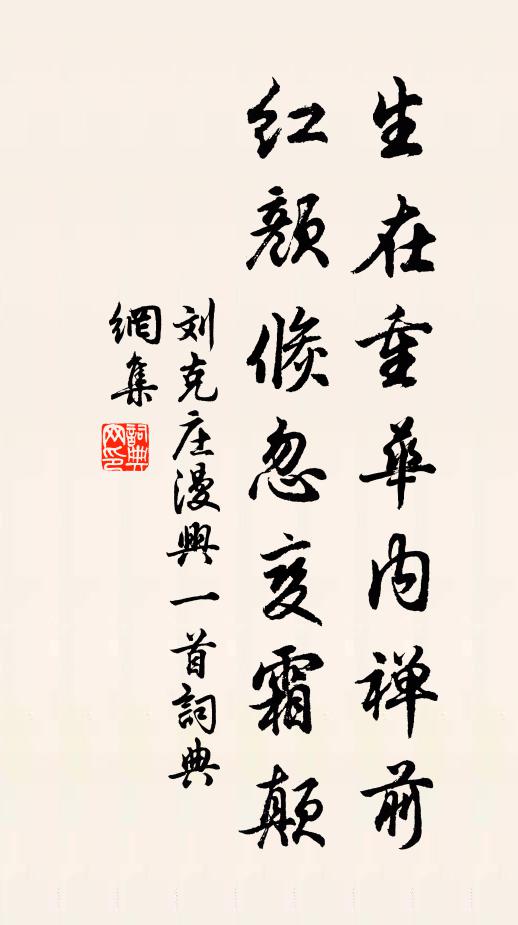 生在重华内禅前
红颜倏忽变霜颠
刘克庄漫興一首詞典
網集
詞典网印